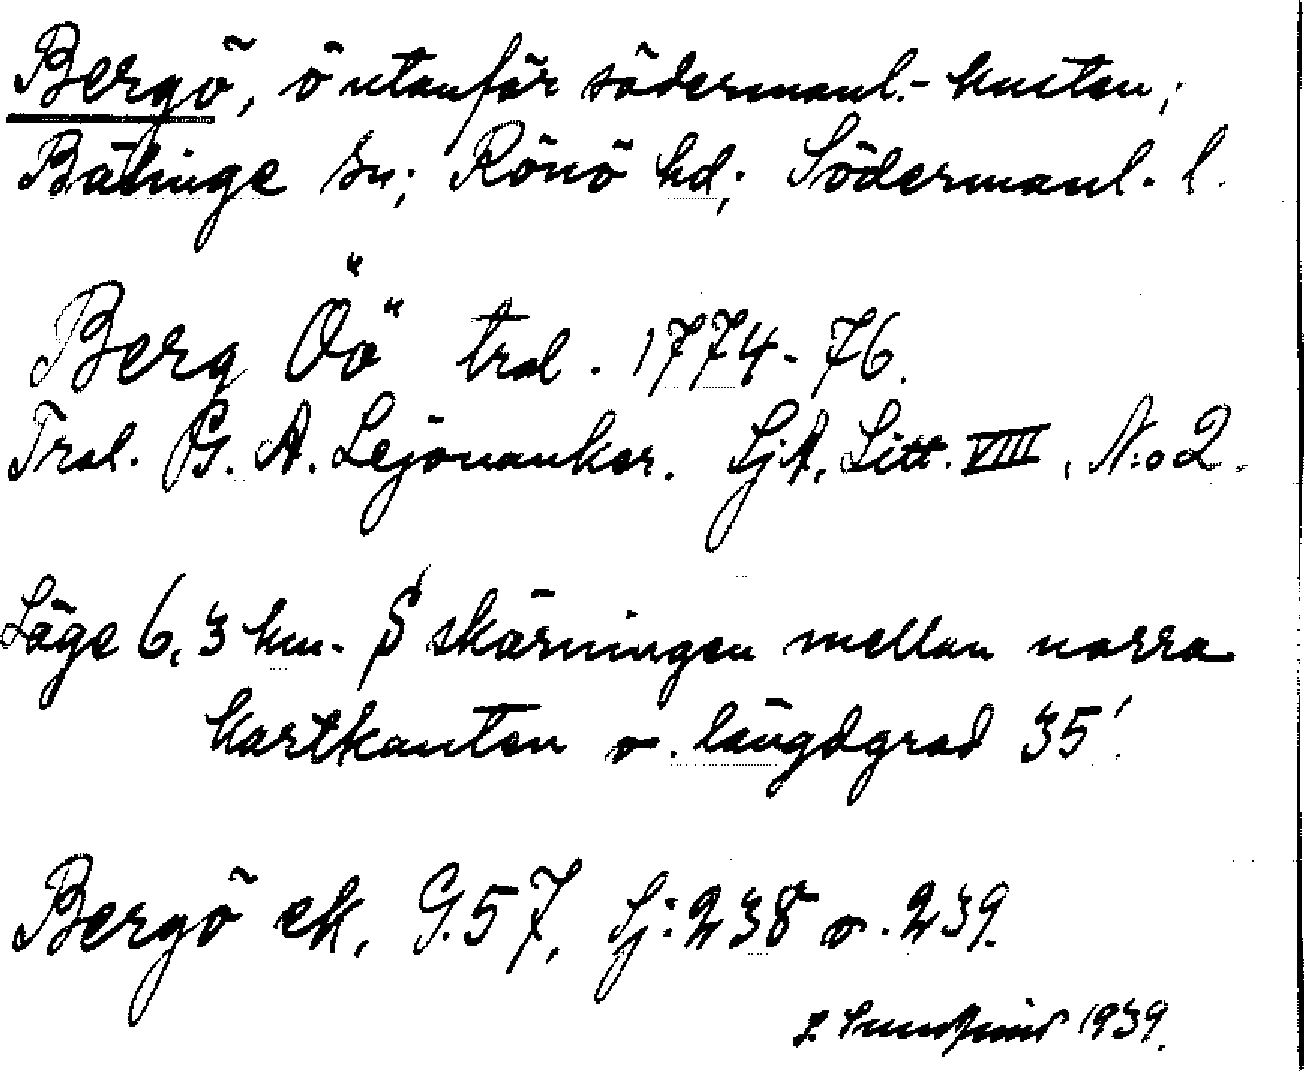 Bergö, ö utanför södermanl.-kusten;
Bälinge sn; Rönö hd; Södermanl. l.
Berg Öö trol. 1774-76.
Trol. G. A. Lejonankar. SjA, Litt. VIII, N:o 2.
Läge 6,3 km. S skärningen mellan norra
kartkanten o. längdgrad 35'.
Bergö ek, G.57, Sj:238 o. 239.
1939.